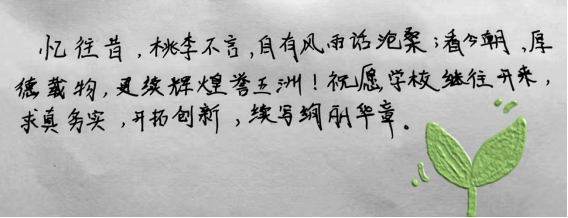 忆往昔,桃李不言,自有风雨话沧桑;看今朝,厚
德载物,更续辉煌誉五洲!祝愿学校继往开来,
求真务实,开拓创新,续写绚丽华章。